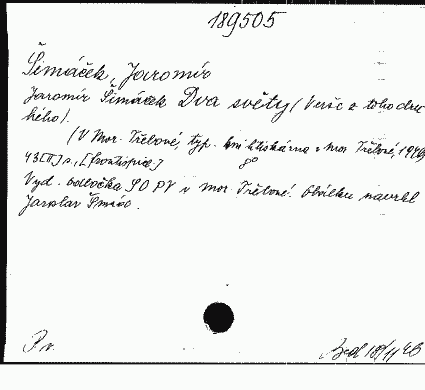 189505
Šimáček, Jaromír
Jaromír Šimáček Dva světy (Verše z toho dru
hého).
(V Mor. Třebové, typ. knihtiskárna v Mor. Třebové, 194
43 [II] s., [frontispice] 8°
Vyd. odbočka SO PV v Mor. Třebové. Obálku navrhl
Jaroslav
Pr.
18/11 48